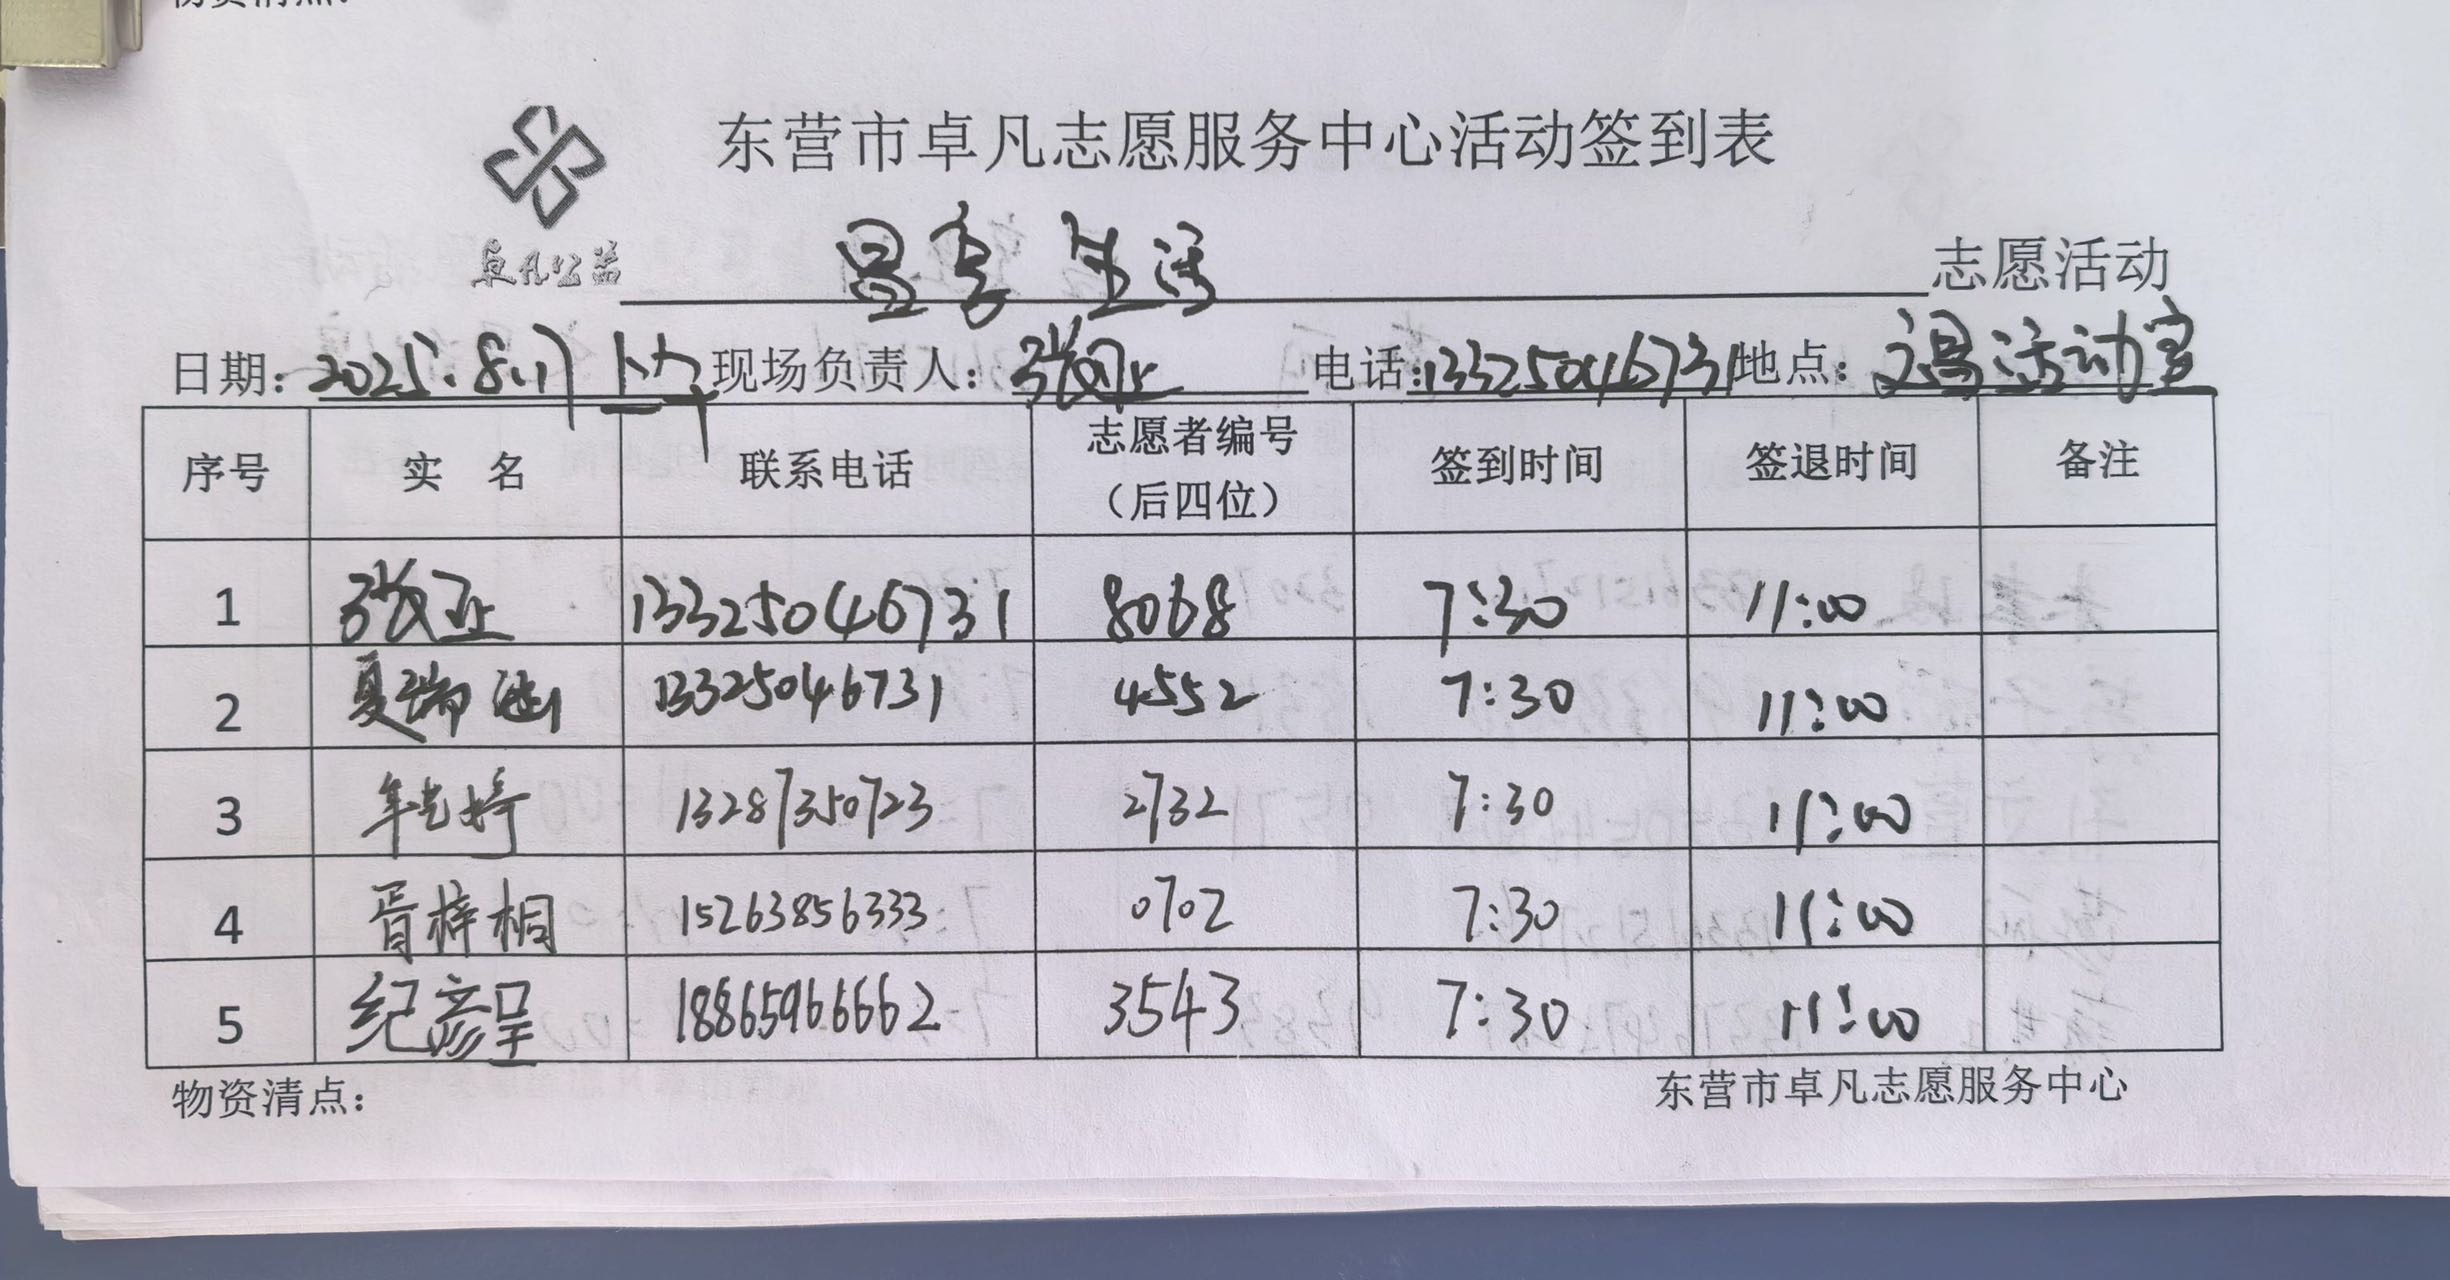 物资清点：
东营市卓凡志愿服务中心活动签到表
卓凡公益
生活 志愿活动
日期：2025.8.17 上午 现场负责人：张 电话：13325046731 地点：文昌活动室
序号 实 名 联系电话 志愿者编号（后四位） 签到时间 签退时间 备注
1 张 13325046731 8068 7:30 11:00
2 夏瑞涵 13325046731 4552 7:30 11:00
3 婷 13287350723 2732 7:30 11:00
4 胥梓桐 15263856333 0702 7:30 11:00
5 纪彦呈 18865966662 3543 7:30 11:00
物资清点： 东营市卓凡志愿服务中心